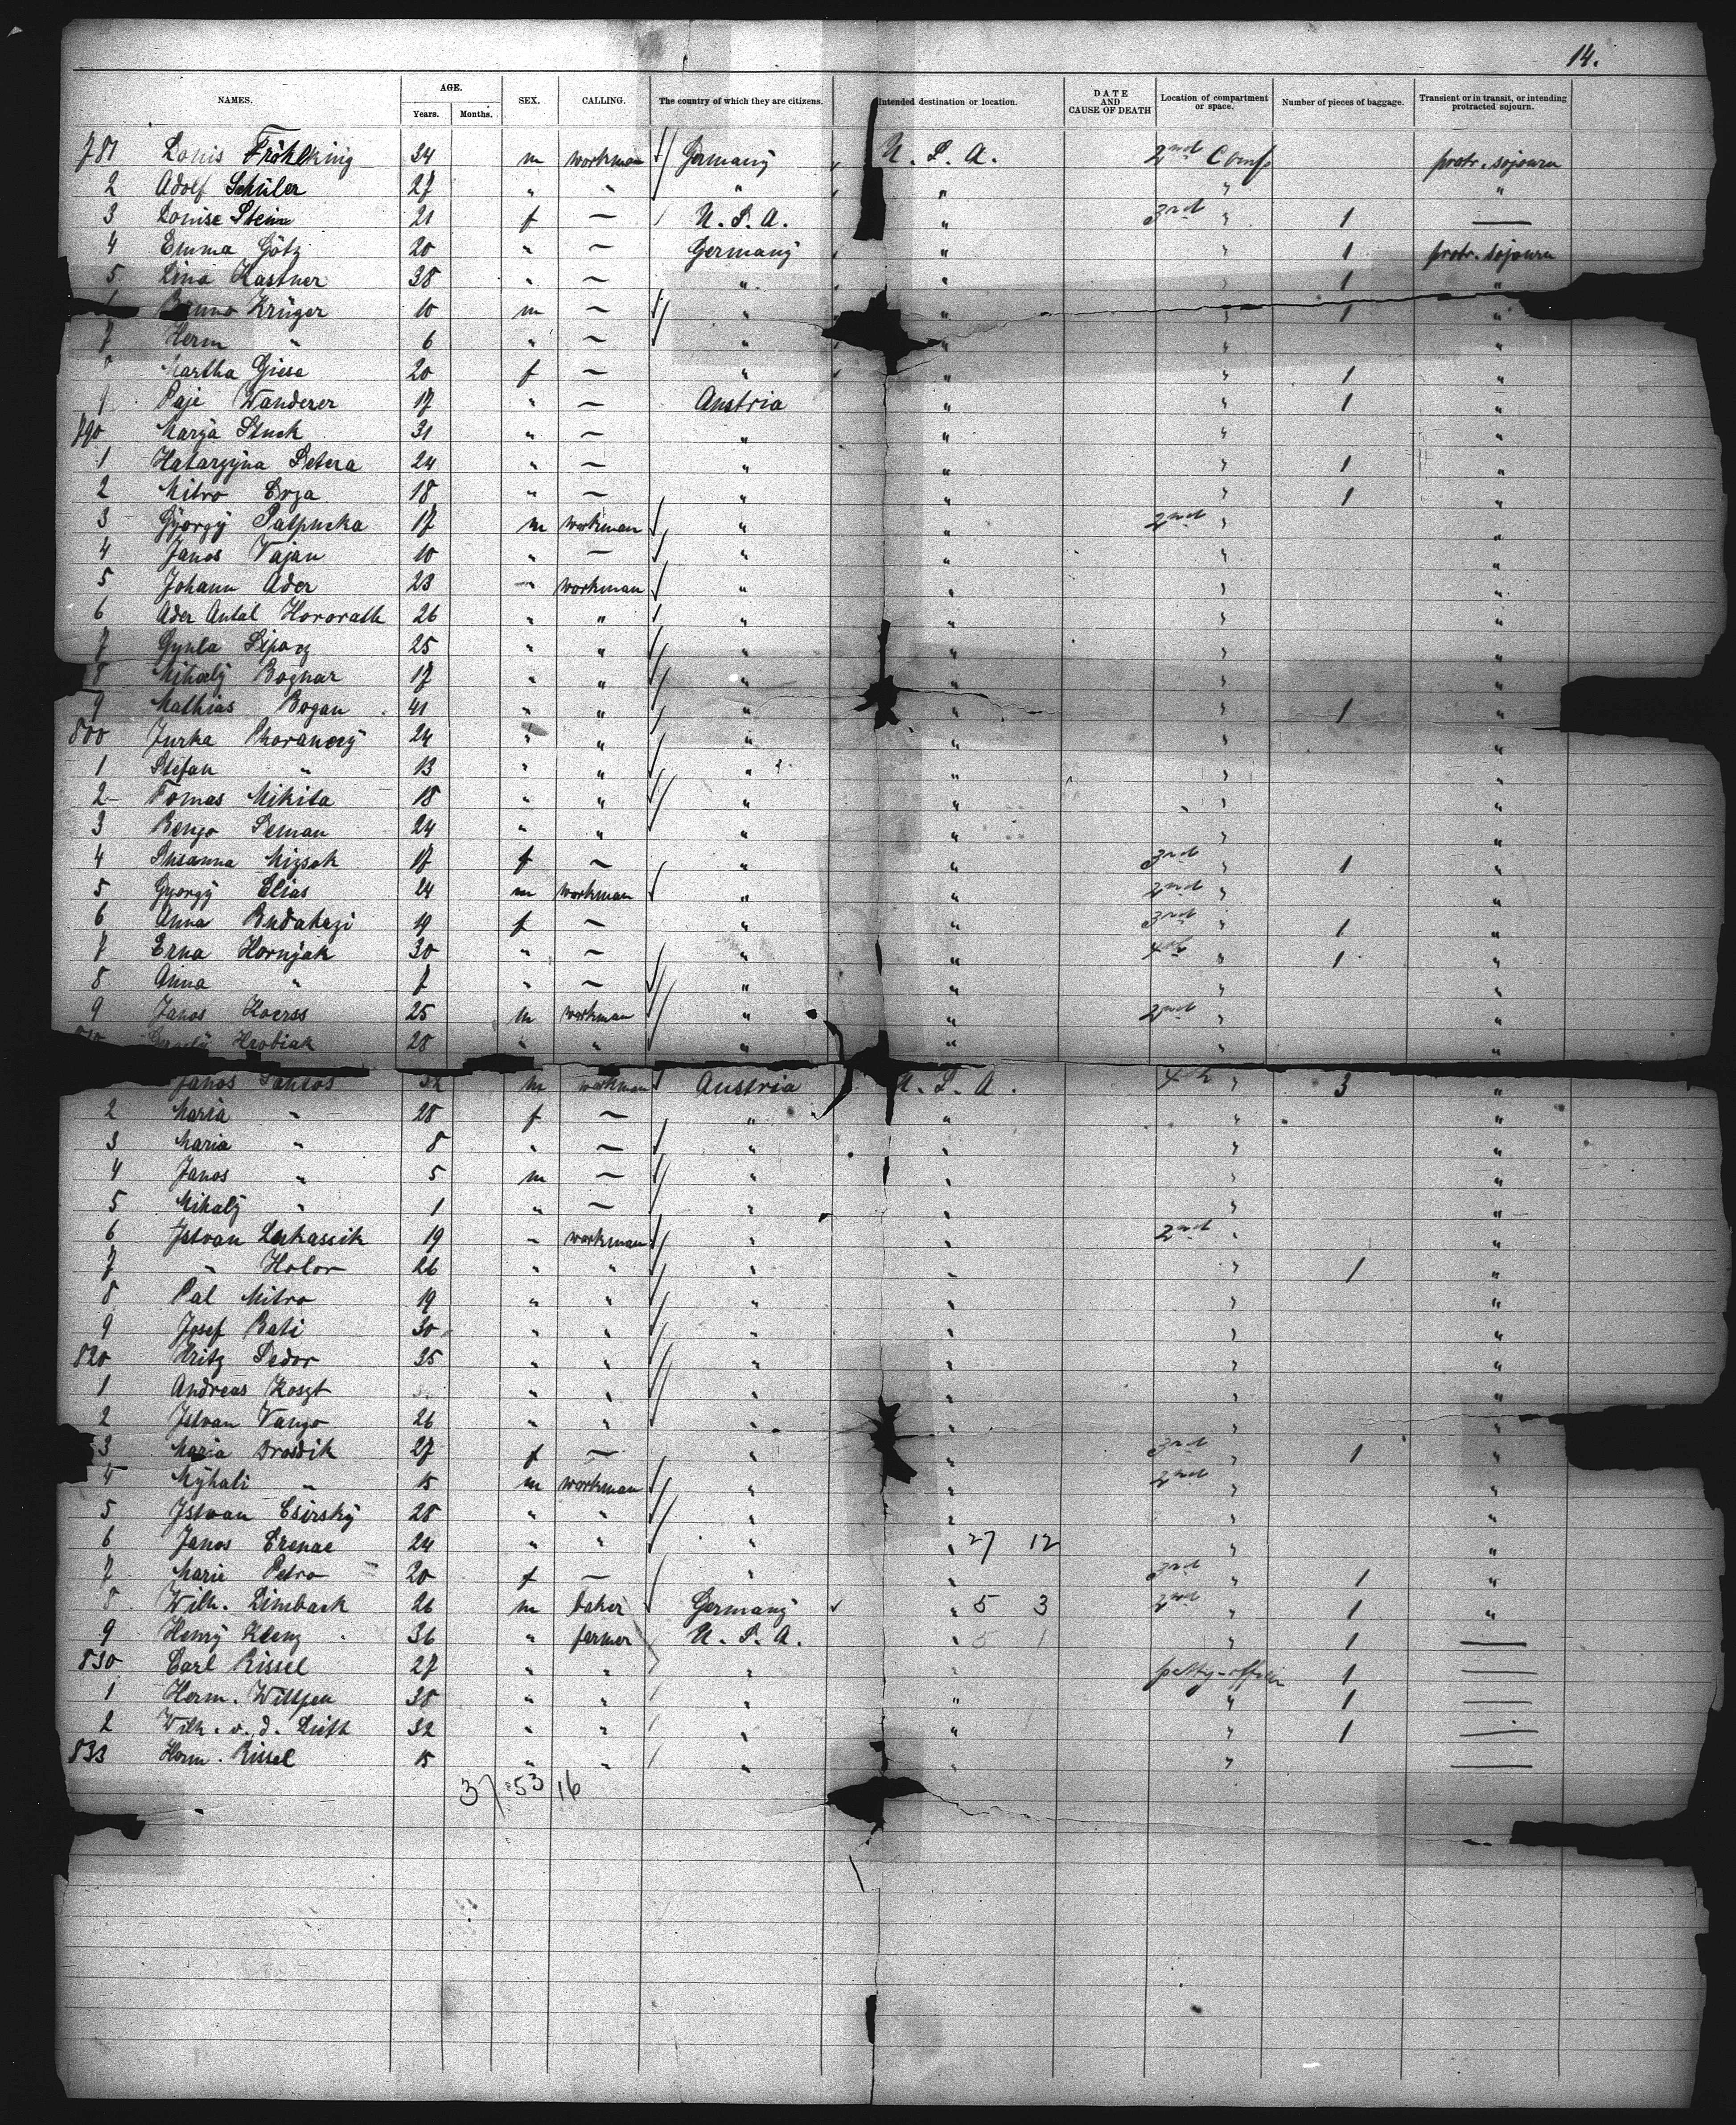 14.
NAMES. AGE. Years. Months. SEX. CALLING. The country of which they are citizens. Intended destination or location. DATE AND CAUSE OF DEATH Location of compartment or space. Number of pieces of baggage. Transient or in transit, or intending protracted sojourn.
781 Louis Fröhlking 24 m workman Germany U. S. A. 2nd Comp protr. sojourn
2 Adolf Schüler 27 " " " " " "
3 Louise Stein 21 f — U. S. A. " 3rd " 1 —
4 Emma Götz 20 " — Germany " " 1 protr. sojourn
5 Lina Kastner 38 " — " " " 1 "
Bruno Krüger 10 m — " " " 1 "
7 Herm " 6 " — " " " "
Martha Giese 20 f — " " " 1 "
9 Wanderer 17 " — Austria " " 1 "
790 Marya Stuck 31 " — " " " "
1 Katarzyna Petera 24 " — " " " 1 "
2 Mitro 18 " — " " " 1 "
3 György 17 m workman " " 2nd " "
4 Janos Vajan 10 " — " " " "
5 Johann Ader 23 " workman " " " "
6 Ader Antal Hororath 26 " " " " " "
7 Gyula 25 " " " " " "
8 Mihaly Bognar 17 " " " " " "
9 Mathias Bogan 41 " " " " " 1 "
800 Jurka 24 " " " " " "
1 Stefan " 13 " " " " " "
2 Tomas Mikita 18 " " " " " "
3 Seman 24 " " " " " "
4 Susanna Mizsak 17 f — " " 3rd " 1 "
5 György Elias 24 m workman " " 2nd " "
6 Anna Budahazi 19 f — " " 3rd " 1 "
7 Erna Hornyak 30 " — " " 4th " 1 "
8 Anna " 7 " — " " " "
9 Janos 25 m workman " " 2nd " "
Hrobiak 28 " " " " " "
Janos m workman Austria U. S. A. 4th " 3 "
2 Maria " 28 f — " " " "
3 Maria " 8 " — " " " "
4 Janos " 5 m — " " " "
5 Mihaly " 1 " — " " " "
6 Jstvan Lukassik 19 " workman " " 2nd " "
7 " Holor 26 " " " " " 1 "
8 Pal Mitro 19 " " " " " "
9 Josef Bati 30 " " " " " "
820 Hritz Fedor 35 " " " " " "
1 Andreas Koszt " " " " " "
2 Jstvan Vango 26 " " " " " "
3 Maria Drosdik 27 f — " " 3rd " 1 "
4 Myhali " 15 m workman " " 2nd " "
5 Jstvan Csirsky 28 " " " " " "
6 Janos 24 " " " " 27 12 " "
7 Marie Petro 20 f — " " 3rd " 1 "
8 Wilh. Limbach 26 m baker Germany " 5 3 2nd " 1 "
9 Henry Klenz 36 " farmer U. S. A. " 5 1 " 1 —
830 Carl Rissel 27 " " " " petty-officer 1 —
1 Herm. Wittpen 38 " " " " " 1 —
2 Wilh. v. d. Lieth 32 " " " " " 1 —
833 Herm. Rissel 15 " " " " " —
37 53 16